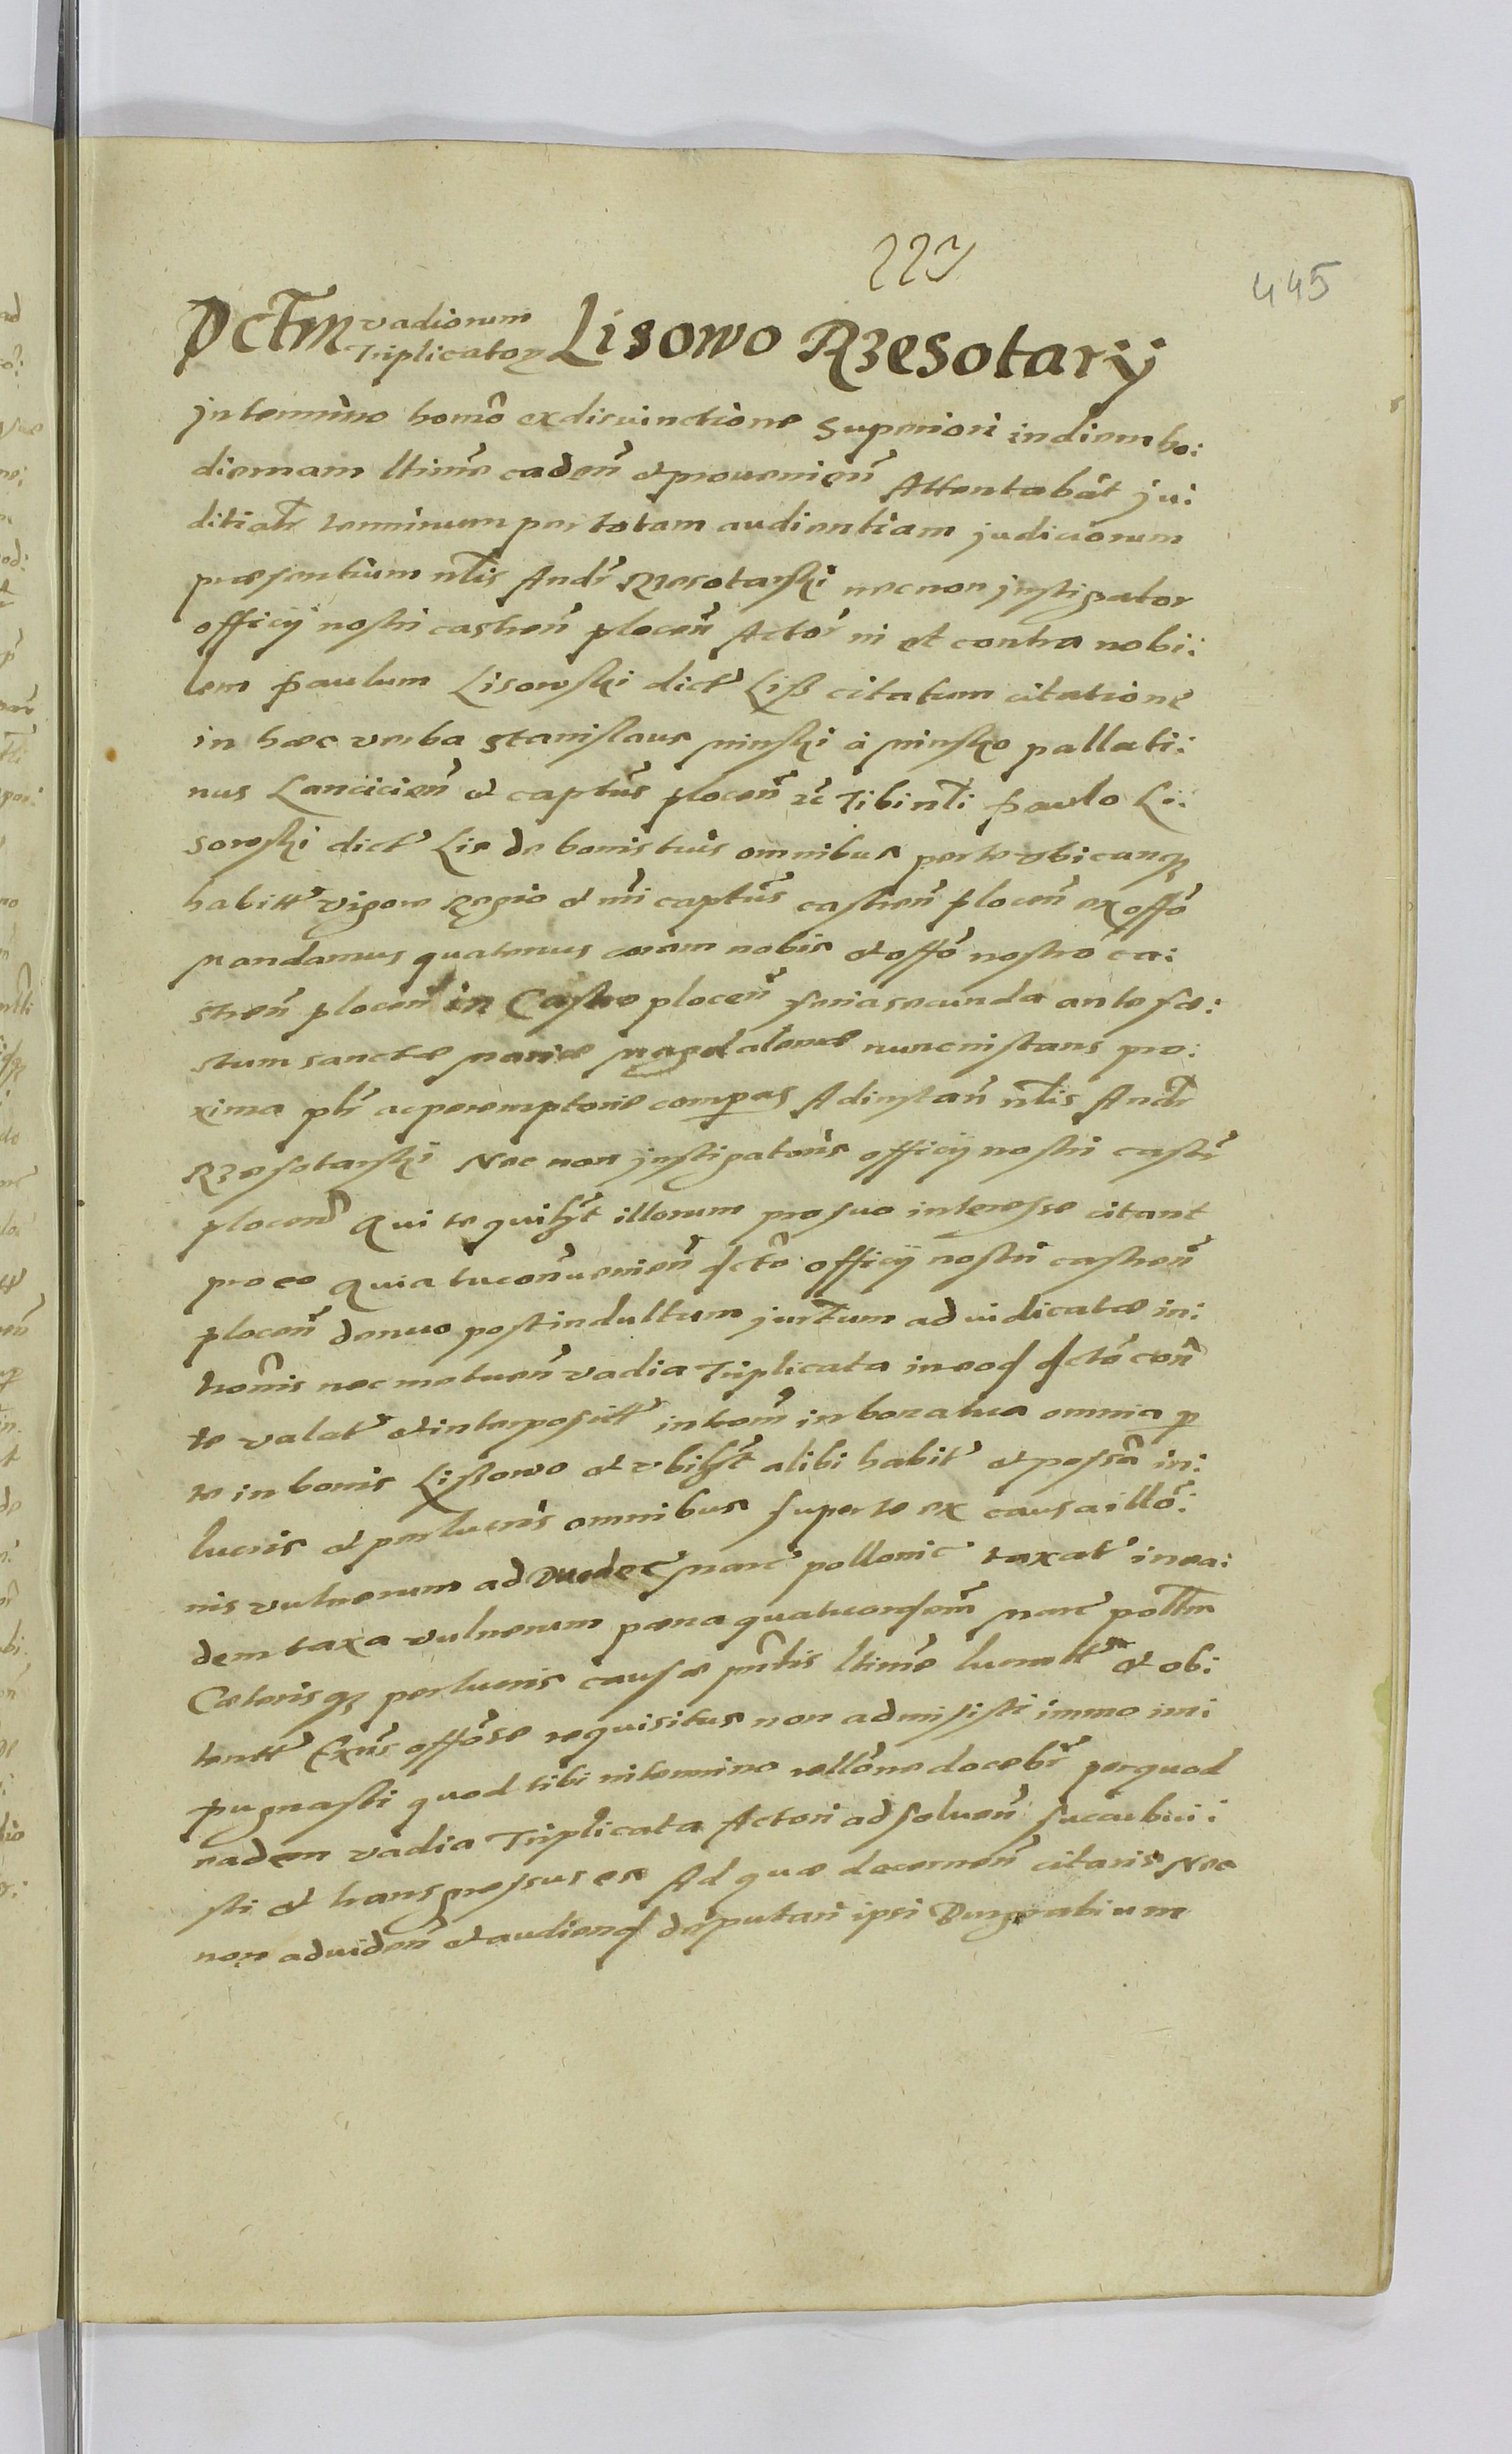 223
445
Dctm vadiorum Triplicatoꝝ Lisowo Rzesotary
in termino homo ex disiunctione superiori in diem ho:
diernam ltime caden et prouenien Attentabat ju:
ditialr terminum per totam audientiam judiciorum
præsentium nlis Andr Rzesotarski nec non jnstigator
officij nostri castren plocen Actor in et contra nobi:
lem paulum Lisowski dict Liß citatum citatione
in hæc verba Stanislaus minski à minsko pallati:
nus Lancicien et captus plocen zc Tibi nli paulo Li:
sowski dict Lis de bonis tuis omnibus per te vbicunqꝫ
habitt vigore Regio et mi captus castren plocen ex offo
mandamus quatenus coram nobis et offo nostro ca:
stren plocen in Castro plocen feria secunda ante fæ:
stum sanctæ mariæ magdalenæ nunc instans pro:
xima phr ac peremptorie compas Ad instan nlis Andr
Rzesotarski Nec non jnstigatoris officij nostri castr
plocen Qui te quilbt illorum pro suo interesse citant
pro eo quia tu conuenien dcto officij nostri castren
plocen denuo post indultum jurtum adiudicatæ in:
tromis nec metuen vadia Triplicata in eod dcto con
te valat et interposit introm in bona tua omnia p
te in bonis Lißowo et vbilbt alibi habit et possa in:
lucris et perlucris omnibus super te ex causa illo:
nis vulnerum ad duodec marc pollonic taxat in ea:
dem taxa vulnerum pæna quatuordem marc poltm
Cæterisqꝫ perlucris causæ pntis ltime lucratt et obi:
tentt Exns offose requisitus non admisisti immo im:
pugnasti quod tibi in termino rellone docebr per quod
eadem vadia Triplicata Actori ad soluen succubui:
sti et transgressus es Ad quæ decernen citaris Nec
non ad uiden et audiend deputari ipsi Burgrabium